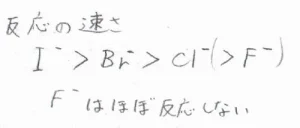 反応の速さ
I⁻ > Br⁻ > Cl⁻(> F⁻)
F⁻はほぼ反応しない